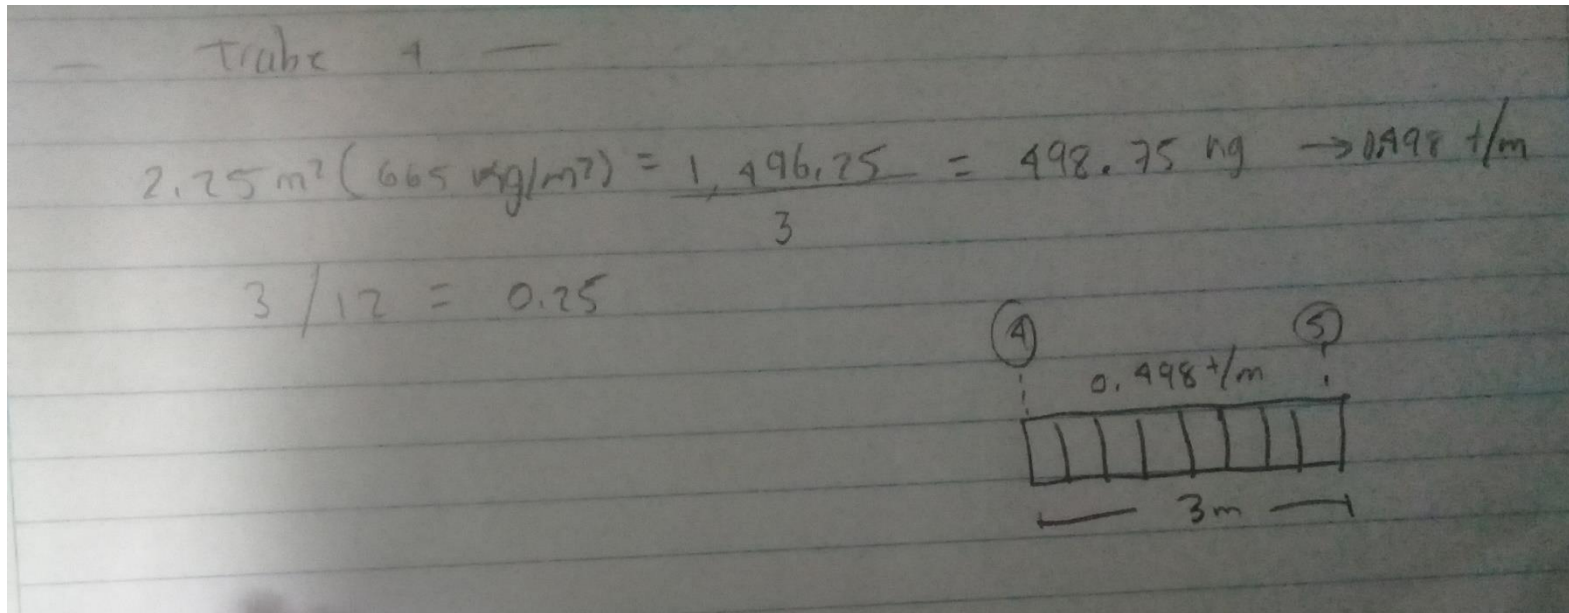 — Trabe 4 —
2.25 m² (665 kg/m²) = 1,496.25 / 3 = 498.75 kg → 0.498 t/m
3 / 12 = 0.25
4 5
0.498 t/m
3m